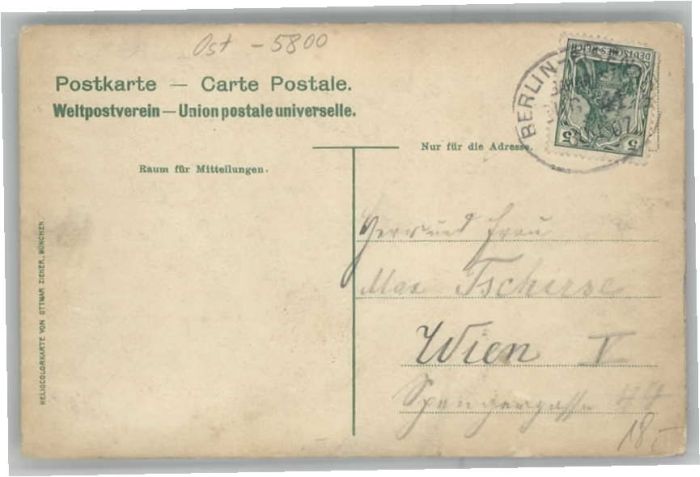 Ost - 5800
Postkarte — Carte Postale.
Weltpostverein — Union postale universelle.
Nur für die Adresse.
Raum für Mitteilungen.
HELIOCOLORKARTE VON OTTMAR ZIEHER, MÜNCHEN.
BERLIN-
DEUTSCHES REICH
5 5
Herr und Frau
Max Tschirse
Wien V
Spengergasse 44
18.-